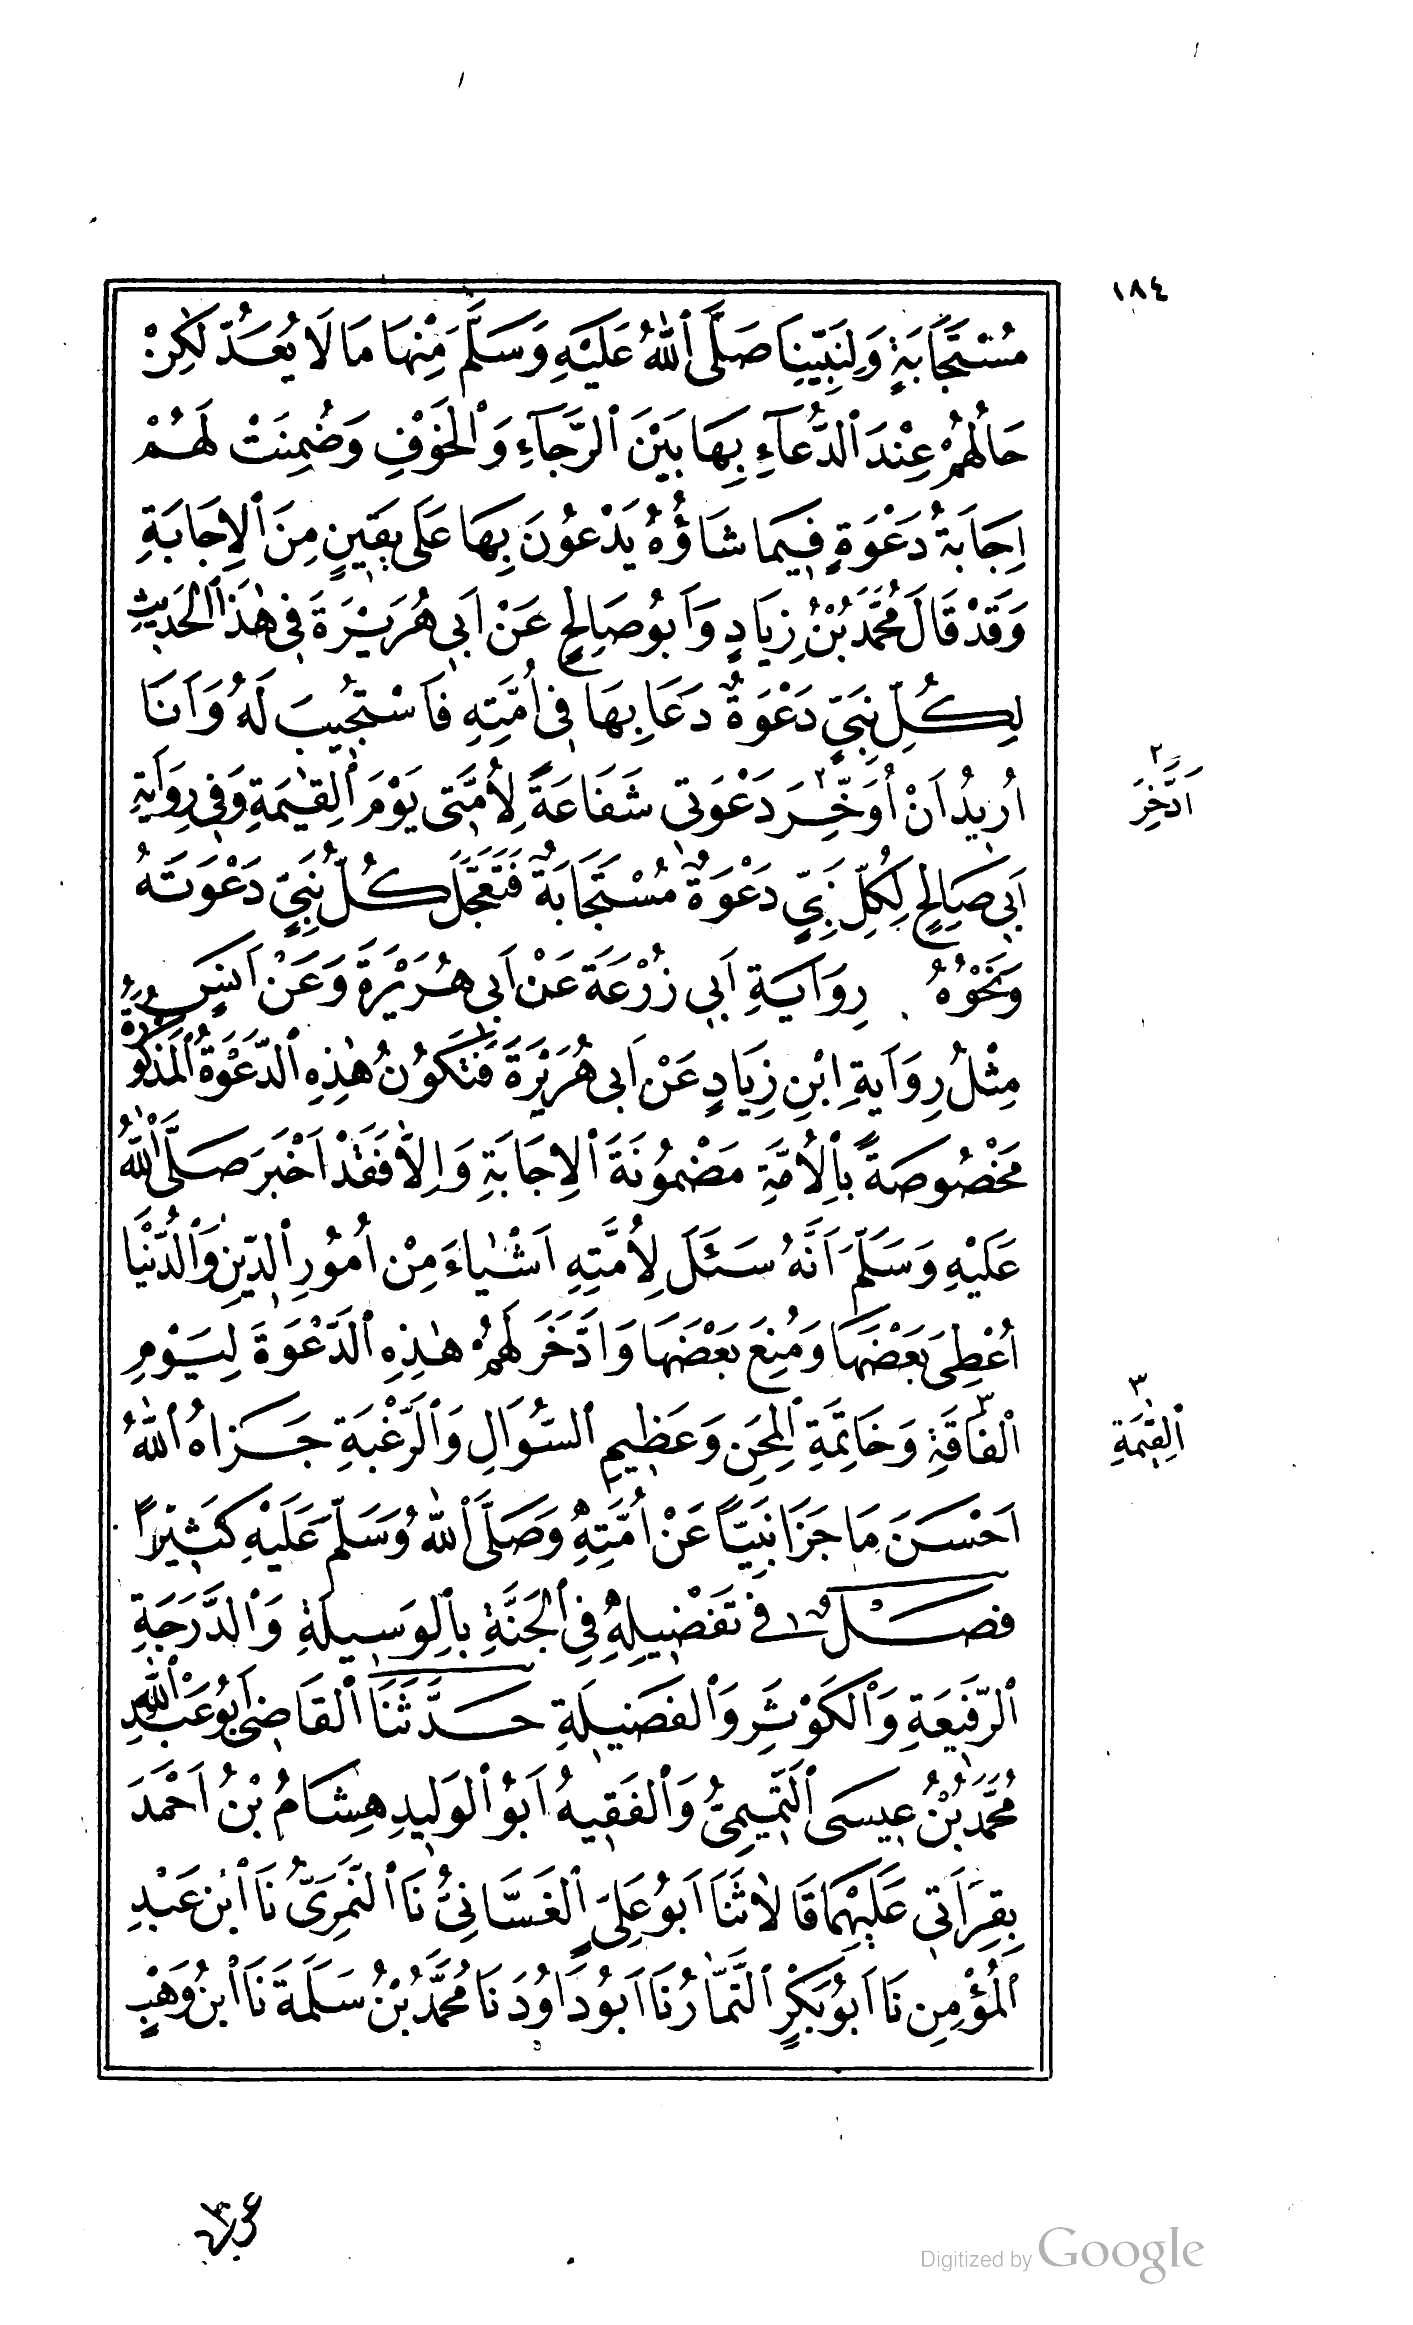 ١٨٤
مُسْتَجَابَةٍ وَلِنَبِيِّنَا صَلَّى ٱللّٰهُ عَلَيْهِ وَسَلَّمَ مِنْهَا مَا لَا يُعَدُّ لٰكِنْ
حَالُهُمْ عِنْدَ ٱلدُّعَآءِ بِهَا بَيْنَ ٱلرَّجَآءِ وَٱلْخَوْفِ وَضُمِنَتْ لَهُمْ
اِجَابَةُ دَعْوَةٍ فِيمَا شَاؤُهُ يَدْعُونَ بِهَا عَلَى يَقِينٍ مِنَ ٱلْاِجَابَةِ
وَقَدْ قَالَ مُحَمَّدُ بْنُ زِيَادٍ وَاَبُو صَالِحٍ عَنْ اَبِي هُرَيْرَةَ فِي هٰذَا ٱلْحَدِيثِ
لِكُلِّ نَبِيٍّ دَعْوَةٌ دَعَا بِهَا فِي اُمَّتِهِ فَاسْتُجِيبَ لَهُ وَاَنَا
اُرِيدُ اَنْ اُوَخِّرَ٢ دَعْوَتِي شَفَاعَةً لِاُمَّتِي يَوْمَ ٱلْقِيٰمَةِ وَفِي رِوَايَةِ
٢
اَدَّخِرَ
اَبِي صَالِحٍ لِكُلِّ نَبِيٍّ دَعْوَةٌ مُسْتَجَابَةٌ فَتَعَجَّلَ كُلُّ نَبِيٍّ دَعْوَتَهُ
وَنَحْوُهُ رِوَايَةِ اَبِي زُرْعَةَ عَنْ اَبِي هُرَيْرَةَ وَعَنْ اَنَسٍ
مِثْلُ رِوَايَةِ ابْنِ زِيَادٍ عَنْ اَبِي هُرَيْرَةَ فَتَكُونُ هٰذِهِ ٱلدَّعْوَةُ ٱلْمَذْكُورَةُ
مَخْصُوصَةً بِٱلْاُمَّةِ مَضْمُونَةَ ٱلْاِجَابَةِ وَاِلَّا فَقَدْ اَخْبَرَ صَلَّى ٱللّٰهُ
عَلَيْهِ وَسَلَّمَ اَنَّهُ سَئَلَ لِاُمَّتِهِ اَشْيَاءَ مِنْ اُمُورِ ٱلدِّينِ وَٱلدُّنْيَا
اُعْطِىَ بَعْضَهَا وَمُنِعَ بَعْضَهَا وَادَّخَرَ لَهُمْ هٰذِهِ ٱلدَّعْوَةَ لِيَوْمِ
ٱلْفَاقَةِ٣ وَخَاتِمَةِ ٱلْمِحَنِ وَعَظِيمِ ٱلسُّوَالِ وَٱلرَّغْبَةِ جَزَاهُ ٱللّٰهُ
٣
ٱلْقِيٰمَةِ
اَحْسَنَ مَا جَزَا نَبِيًّا عَنْ اُمَّتِهِ وَصَلَّى ٱللّٰهُ وَسَلَّمَ عَلَيْهِ كَثِيْرًا
فصل فِي تَفْضِيلِهِ فِي ٱلْجَنَّةِ بِٱلْوَسِيلَةِ وَٱلدَّرَجَةِ
ٱلرَّفِيعَةِ وَٱلْكَوْثَرِ وَٱلْفَضِيلَةِ حَدَّثَنَا ٱلْقَاضِي اَبُو عَبْدِ ٱللّٰهِ
مُحَمَّدُ بْنُ عِيسَى ٱلتَّمِيمِيُّ وَٱلْفَقِيهُ اَبُو ٱلْوَلِيدِ هِشَامُ بْنُ اَحْمَدَ
بِقِرَاَتِي عَلَيْهِمَا قَالَا ثَنَا اَبُو عَلِيٍّ ٱلْغَسَّانِيُّ نَا ٱلنَّمَرِيُّ نَا ٱبْنُ عَبْدِ
ٱلْمُؤْمِنِ نَا اَبُو بَكْرٍ ٱلتَّمَّارُ نَا اَبُو دَاوُدَ نَا مُحَمَّدُ بْنُ سَلَمَةَ نَا ٱبْنُ وَهْبٍ
Digitized by Google